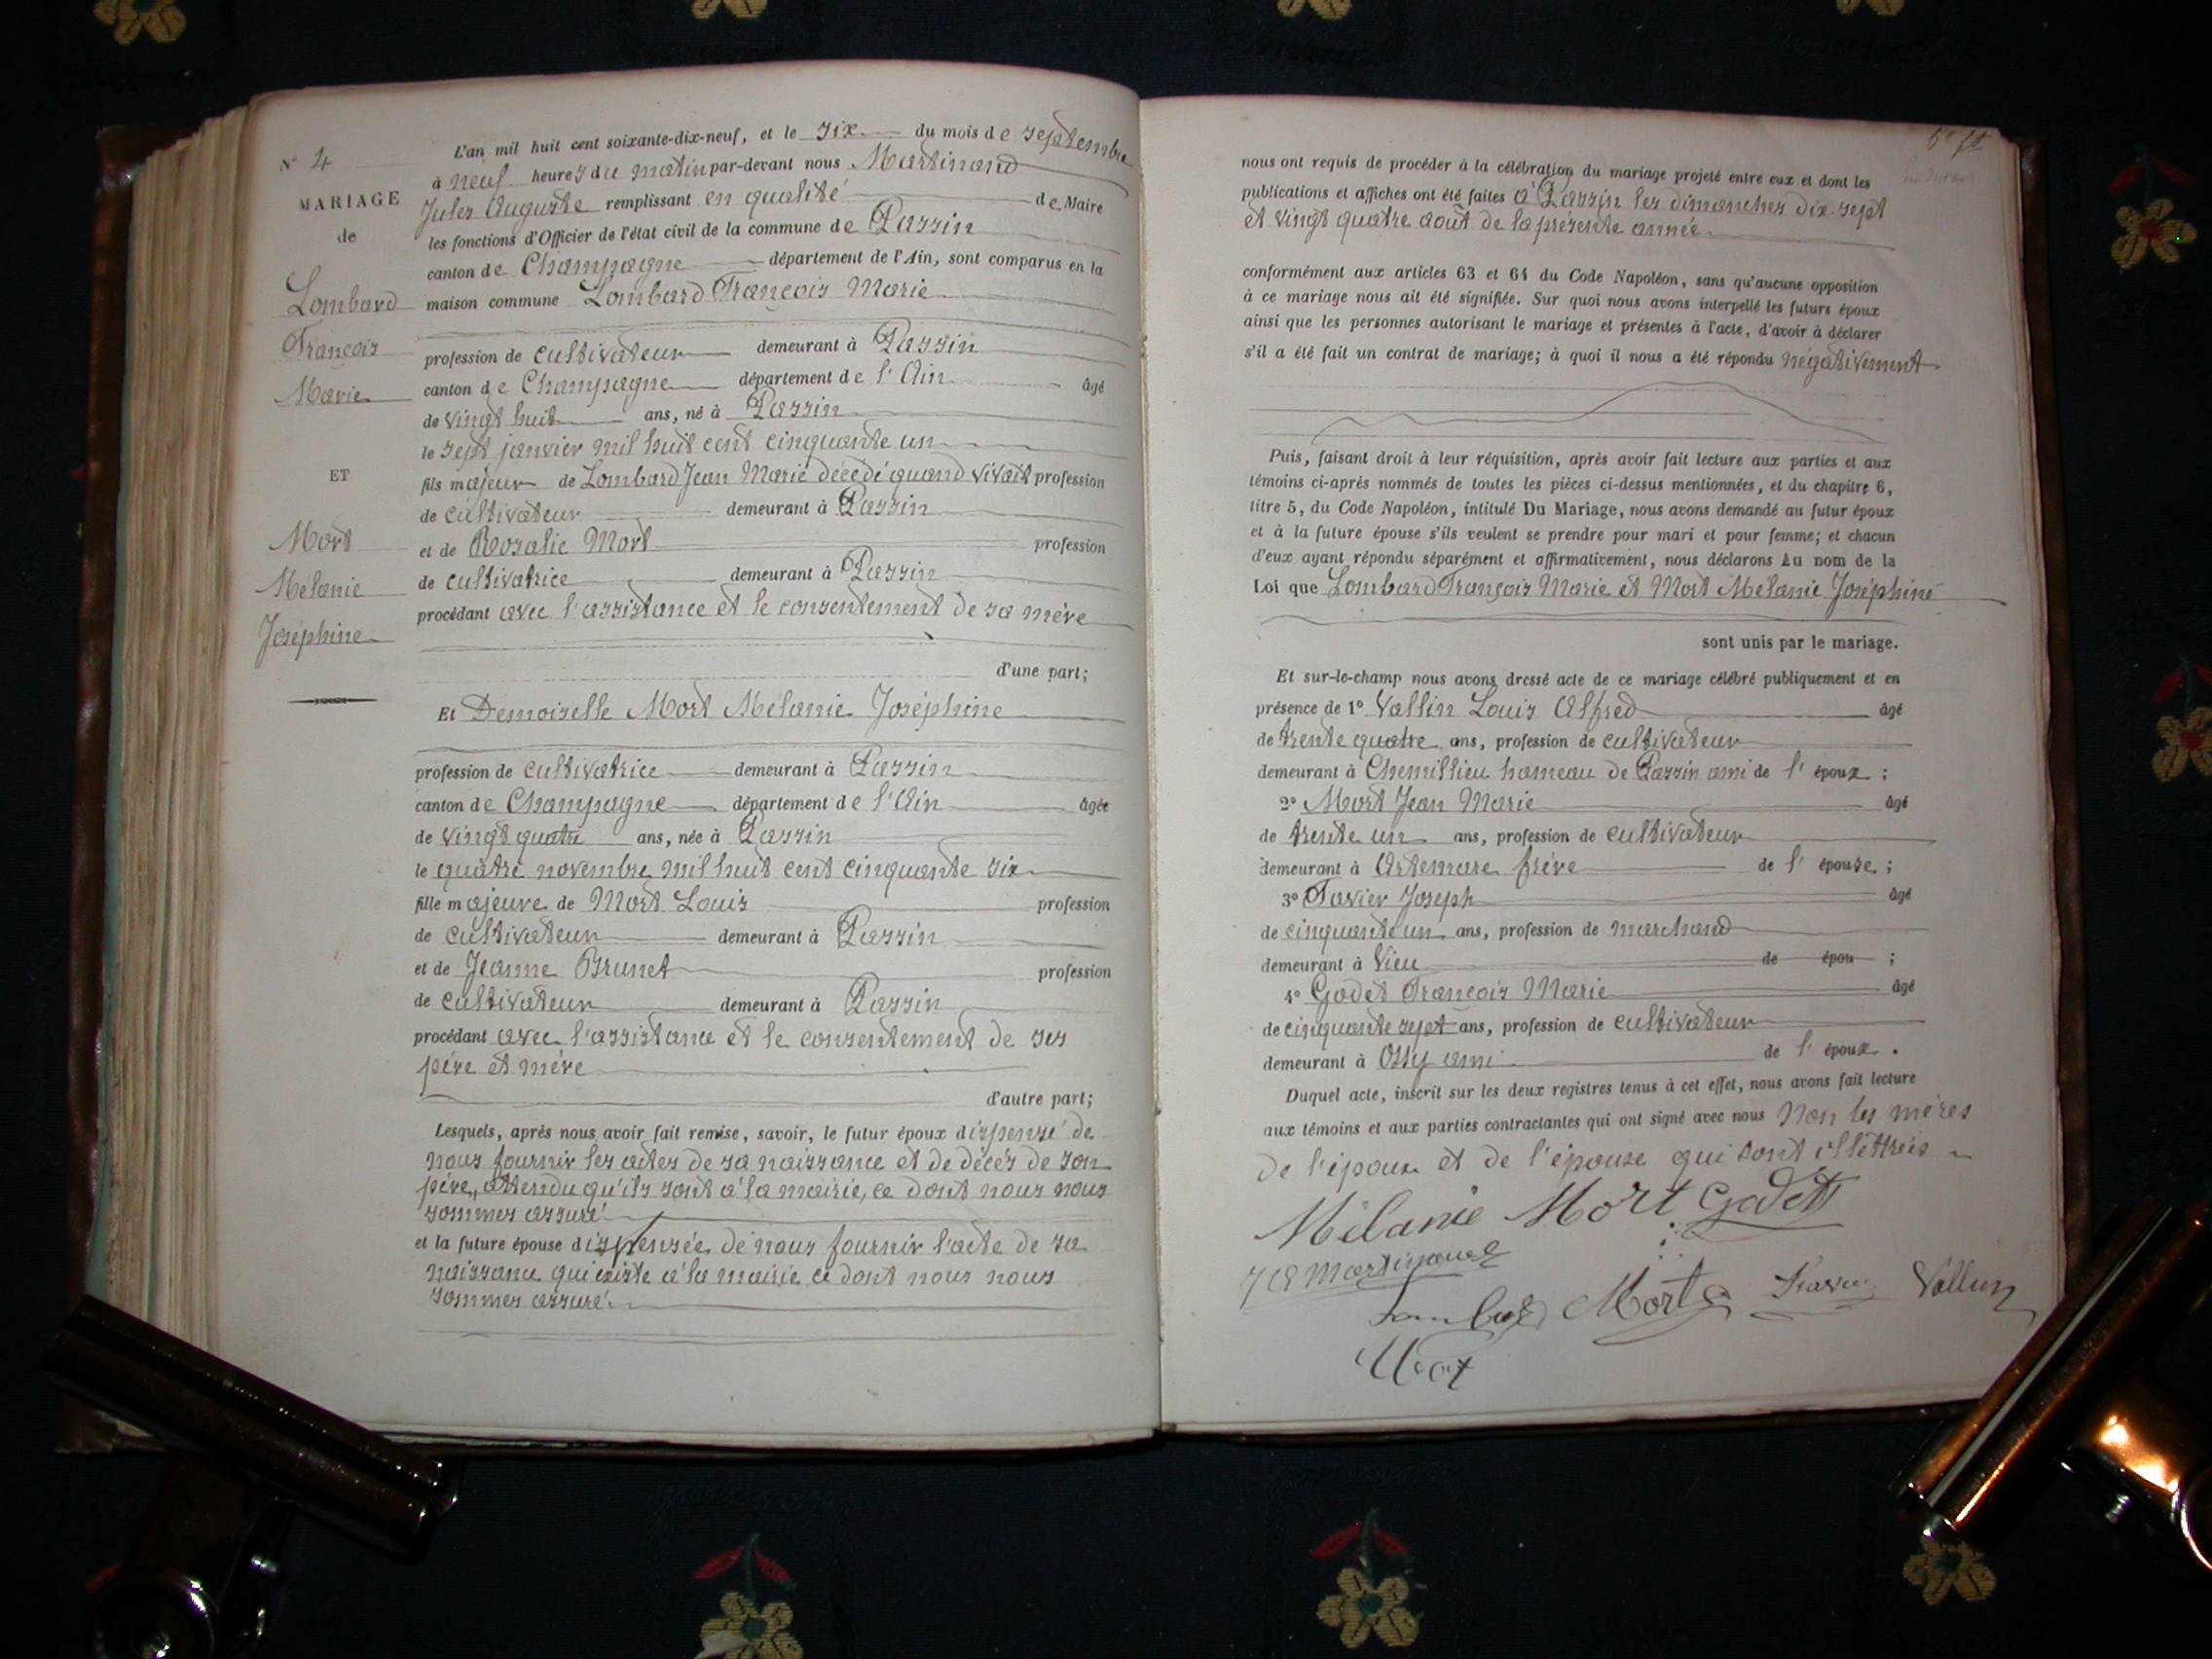 N° 4
MARIAGE
de
Lombard
François
Marie
ET
Mort
Mélanie
Joséphine
L'an mil huit cent soixante-dix-neuf, et le six du mois de septembre
à neuf heures du matin par-devant nous Martinand
Jules Auguste remplissant en qualité de Maire
les fonctions d'Officier de l'état civil de la commune de Passin
canton de Champagne département de l'Ain, sont comparus en la
maison commune Lombard François Marie
profession de cultivateur demeurant à Passin
canton de Champagne département de l'Ain âgé
de vingt huit ans, né à Passin
le sept janvier mil huit cent cinquante un
fils majeur de Lombard Jean Marie décédé quand vivait profession
de cultivateur demeurant à Passin
et de Rosalie Mort profession
de cultivatrice demeurant à Passin
procédant avec l'assistance et le consentement de sa mère
d'une part;
Et Demoiselle Mort Mélanie Joséphine
profession de cultivatrice demeurant à Passin
canton de Champagne département de l'Ain âgée
de vingt quatre ans, née à Passin
le quatre novembre mil huit cent cinquante six
fille majeure de Mort Louis profession
de cultivateur demeurant à Passin
et de Jeanne Brunet profession
de cultivateur demeurant à Passin
procédant avec l'assistance et le consentement de ses
père et mère
d'autre part;
Lesquels, après nous avoir fait remise, savoir, le futur époux dispensé de
nous fournir les actes de sa naissance et de décès de son
père, attendu qu'ils sont à la mairie, ce dont nous nous
sommes assuré
et la future épouse dispensée de nous fournir l'acte de sa
naissance qui existe à la mairie ce dont nous nous
sommes assuré.
nous ont requis de procéder à la célébration du mariage projeté entre eux et dont les
publications et affiches ont été faites à Passin les dimanches dix-sept
et vingt quatre août de la présente année.
conformément aux articles 63 et 64 du Code Napoléon, sans qu'aucune opposition
à ce mariage nous ait été signifiée. Sur quoi nous avons interpellé les futurs époux
ainsi que les personnes autorisant le mariage et présentes à l'acte, d'avoir à déclarer
s'il a été fait un contrat de mariage; à quoi il nous a été répondu négativement
Puis, faisant droit à leur réquisition, après avoir fait lecture aux parties et aux
témoins ci-après nommés de toutes les pièces ci-dessus mentionnées, et du chapitre 6,
titre 5, du Code Napoléon, intitulé Du Mariage, nous avons demandé au futur époux
et à la future épouse s'ils veulent se prendre pour mari et pour femme; et chacun
d'eux ayant répondu séparément et affirmativement, nous déclarons au nom de la
Loi que Lombard François Marie et Mort Mélanie Joséphine
sont unis par le mariage.
Et sur-le-champ nous avons dressé acte de ce mariage célébré publiquement et en
présence de 1° Vallin Louis Alfred âgé
de trente quatre ans, profession de cultivateur
demeurant à Chemillieu hameau de Passin ami de l'époux;
2° Mort Jean Marie âgé
de trente un ans, profession de cultivateur
demeurant à Artemare frère de l'épouse;
3° Tavier Joseph âgé
de cinquante un ans, profession de marchand
demeurant à Vieu de épou ;
4° Godet François Marie âgé
de cinquante sept ans, profession de cultivateur
demeurant à Ossy ami de l'époux.
Duquel acte, inscrit sur les deux registres tenus à cet effet, nous avons fait lecture
aux témoins et aux parties contractantes qui ont signé avec nous non les mères
de l'époux et de l'épouse qui sont illettrées
Mélanie Mort Godet
J A Martinand
Lombard Mort Vallin
Mort